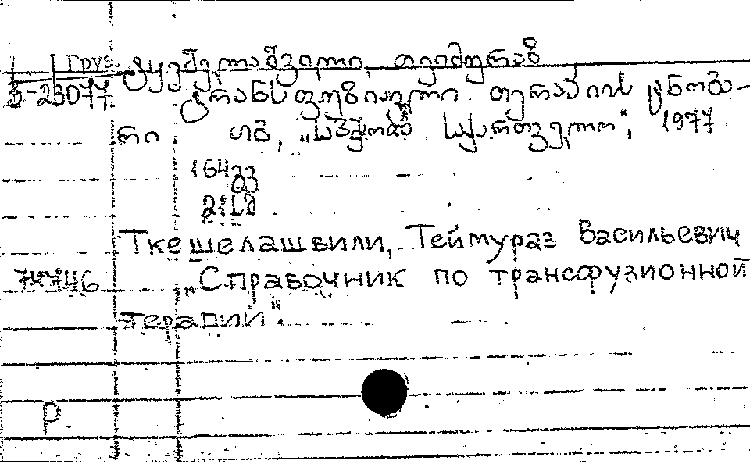 Груз. ტყეშელაშვილი, თეიმურაზ
Б-23077 ტრანსფუზიული თერაპიის ცნობა-
რი თბ, „საბჭოთა საქართველო", 1977
164 გვ
Ткешелашвили, Теймураз Васильевич
74746 „Справочник по трансфузионной
терапии".
Р